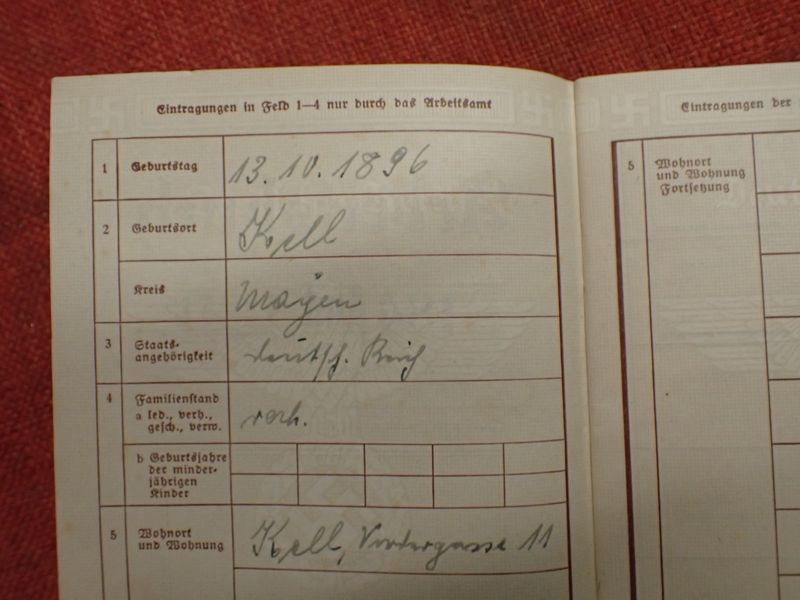 Eintragungen in Feld 1—4 nur durch das Arbeitsamt
1 Geburtstag 13.10.1896
2 Geburtsort Kell
Kreis Mayen
3 Staats-
angehörigkeit deutsch. Reich
4 Familienstand
a led., verh.,
gesch., verw. verh.
b Geburtsjahre
der minder-
jährigen
Kinder
5 Wohnort
und Wohnung Kell, Vordergasse 11
Eintragungen der
5 Wohnort
und Wohnung
Fortsetzung